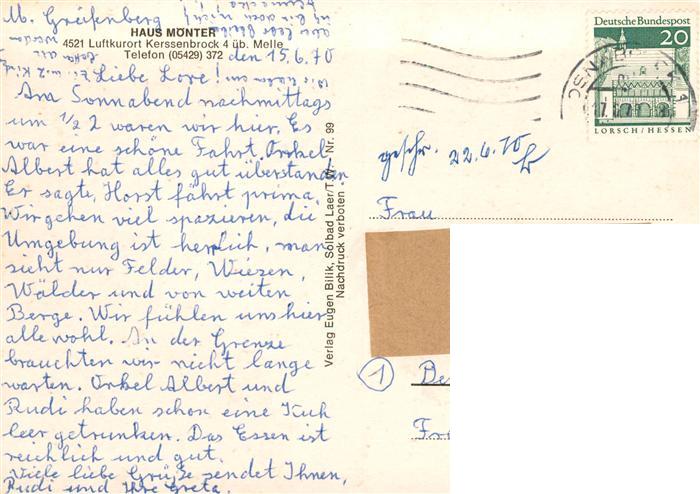 M. Greifenberg
HAUS MÖNTER
4521 Luftkurort Kerssenbrock 4 üb. Melle
Telefon (05429) 372
den 15.6.70
Liebe Lore!
Am Sonnabend nachmittags
um 1/2 2 waren wir hier. Es
war eine schöne Fahrt. Onkel
Albert hat alles gut überstanden
Er sagte, Horst fährt prima.
Wir gehen viel spazieren, die
Umgebung ist herrlich, man
sieht nur Felder, Wiezen,
Wälder und von weiten
Berge. Wir fühlen uns hier
alle wohl. An der Grenze
brauchten wir nicht lange
warten. Onkel Albert und
Rudi haben schon eine Kuh
leer getrunken. Das Essen ist
reichlich und gut.
Viele liebe Grüße sendet Ihnen,
Rudi und Ihre Greta.
Verlag Eugen Bilik, Solbad Laer/T.W. Nr. 99
Nachdruck verboten
Deutsche Bundespost
20
LORSCH/HESSEN
geschr. 22.6.70
Frau
1